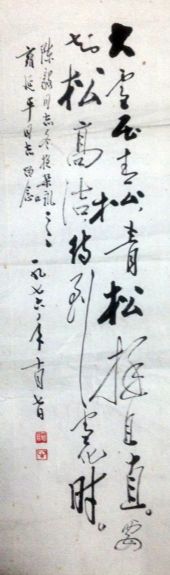 大雪压青松,青松挺且直。要
知松高洁,待到雪化时。
陈毅同志冬夜杂咏之一
延平同志留念
一九七六年